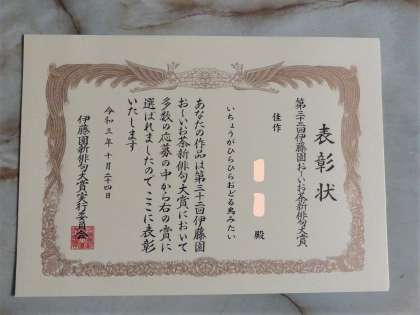 表彰状
第三十二回伊藤園お～いお茶新俳句大賞
佳作
殿
いちょうがひらひらおどる鳥みたい
あなたの作品は第三十二回伊藤園
お～いお茶新俳句大賞において
多数の応募の中から右の賞に
選ばれましたのでここに表彰
いたします
令和三年十月二十四日
伊藤園新俳句大賞実行委員会